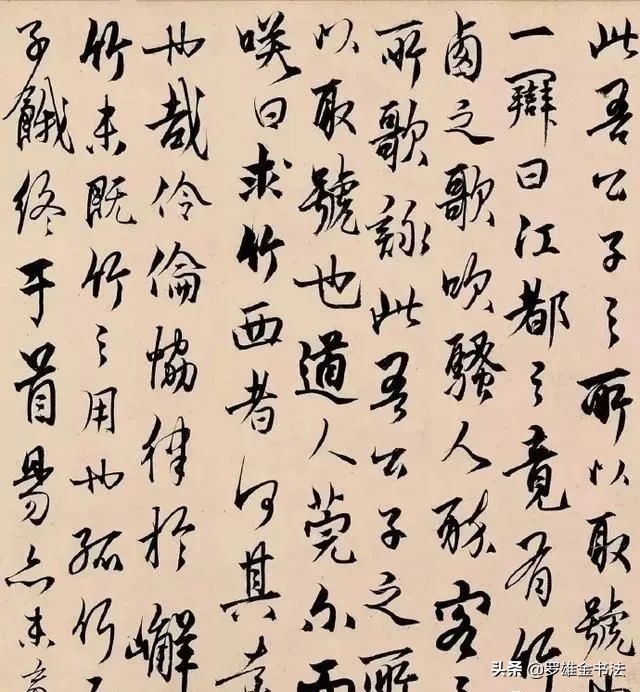 此吾公子之所以取號也
一辯曰江都之竟有竹
鹵之歌吹騷人醉客之
所歌詠此吾公子之所
以取號也道人莞尔而
咲曰求竹西者何其
也哉伶倫恊律於嶰
竹未既竹之用也孤竹之
子餓终于首昜亦未
头条 @罗雄金书法